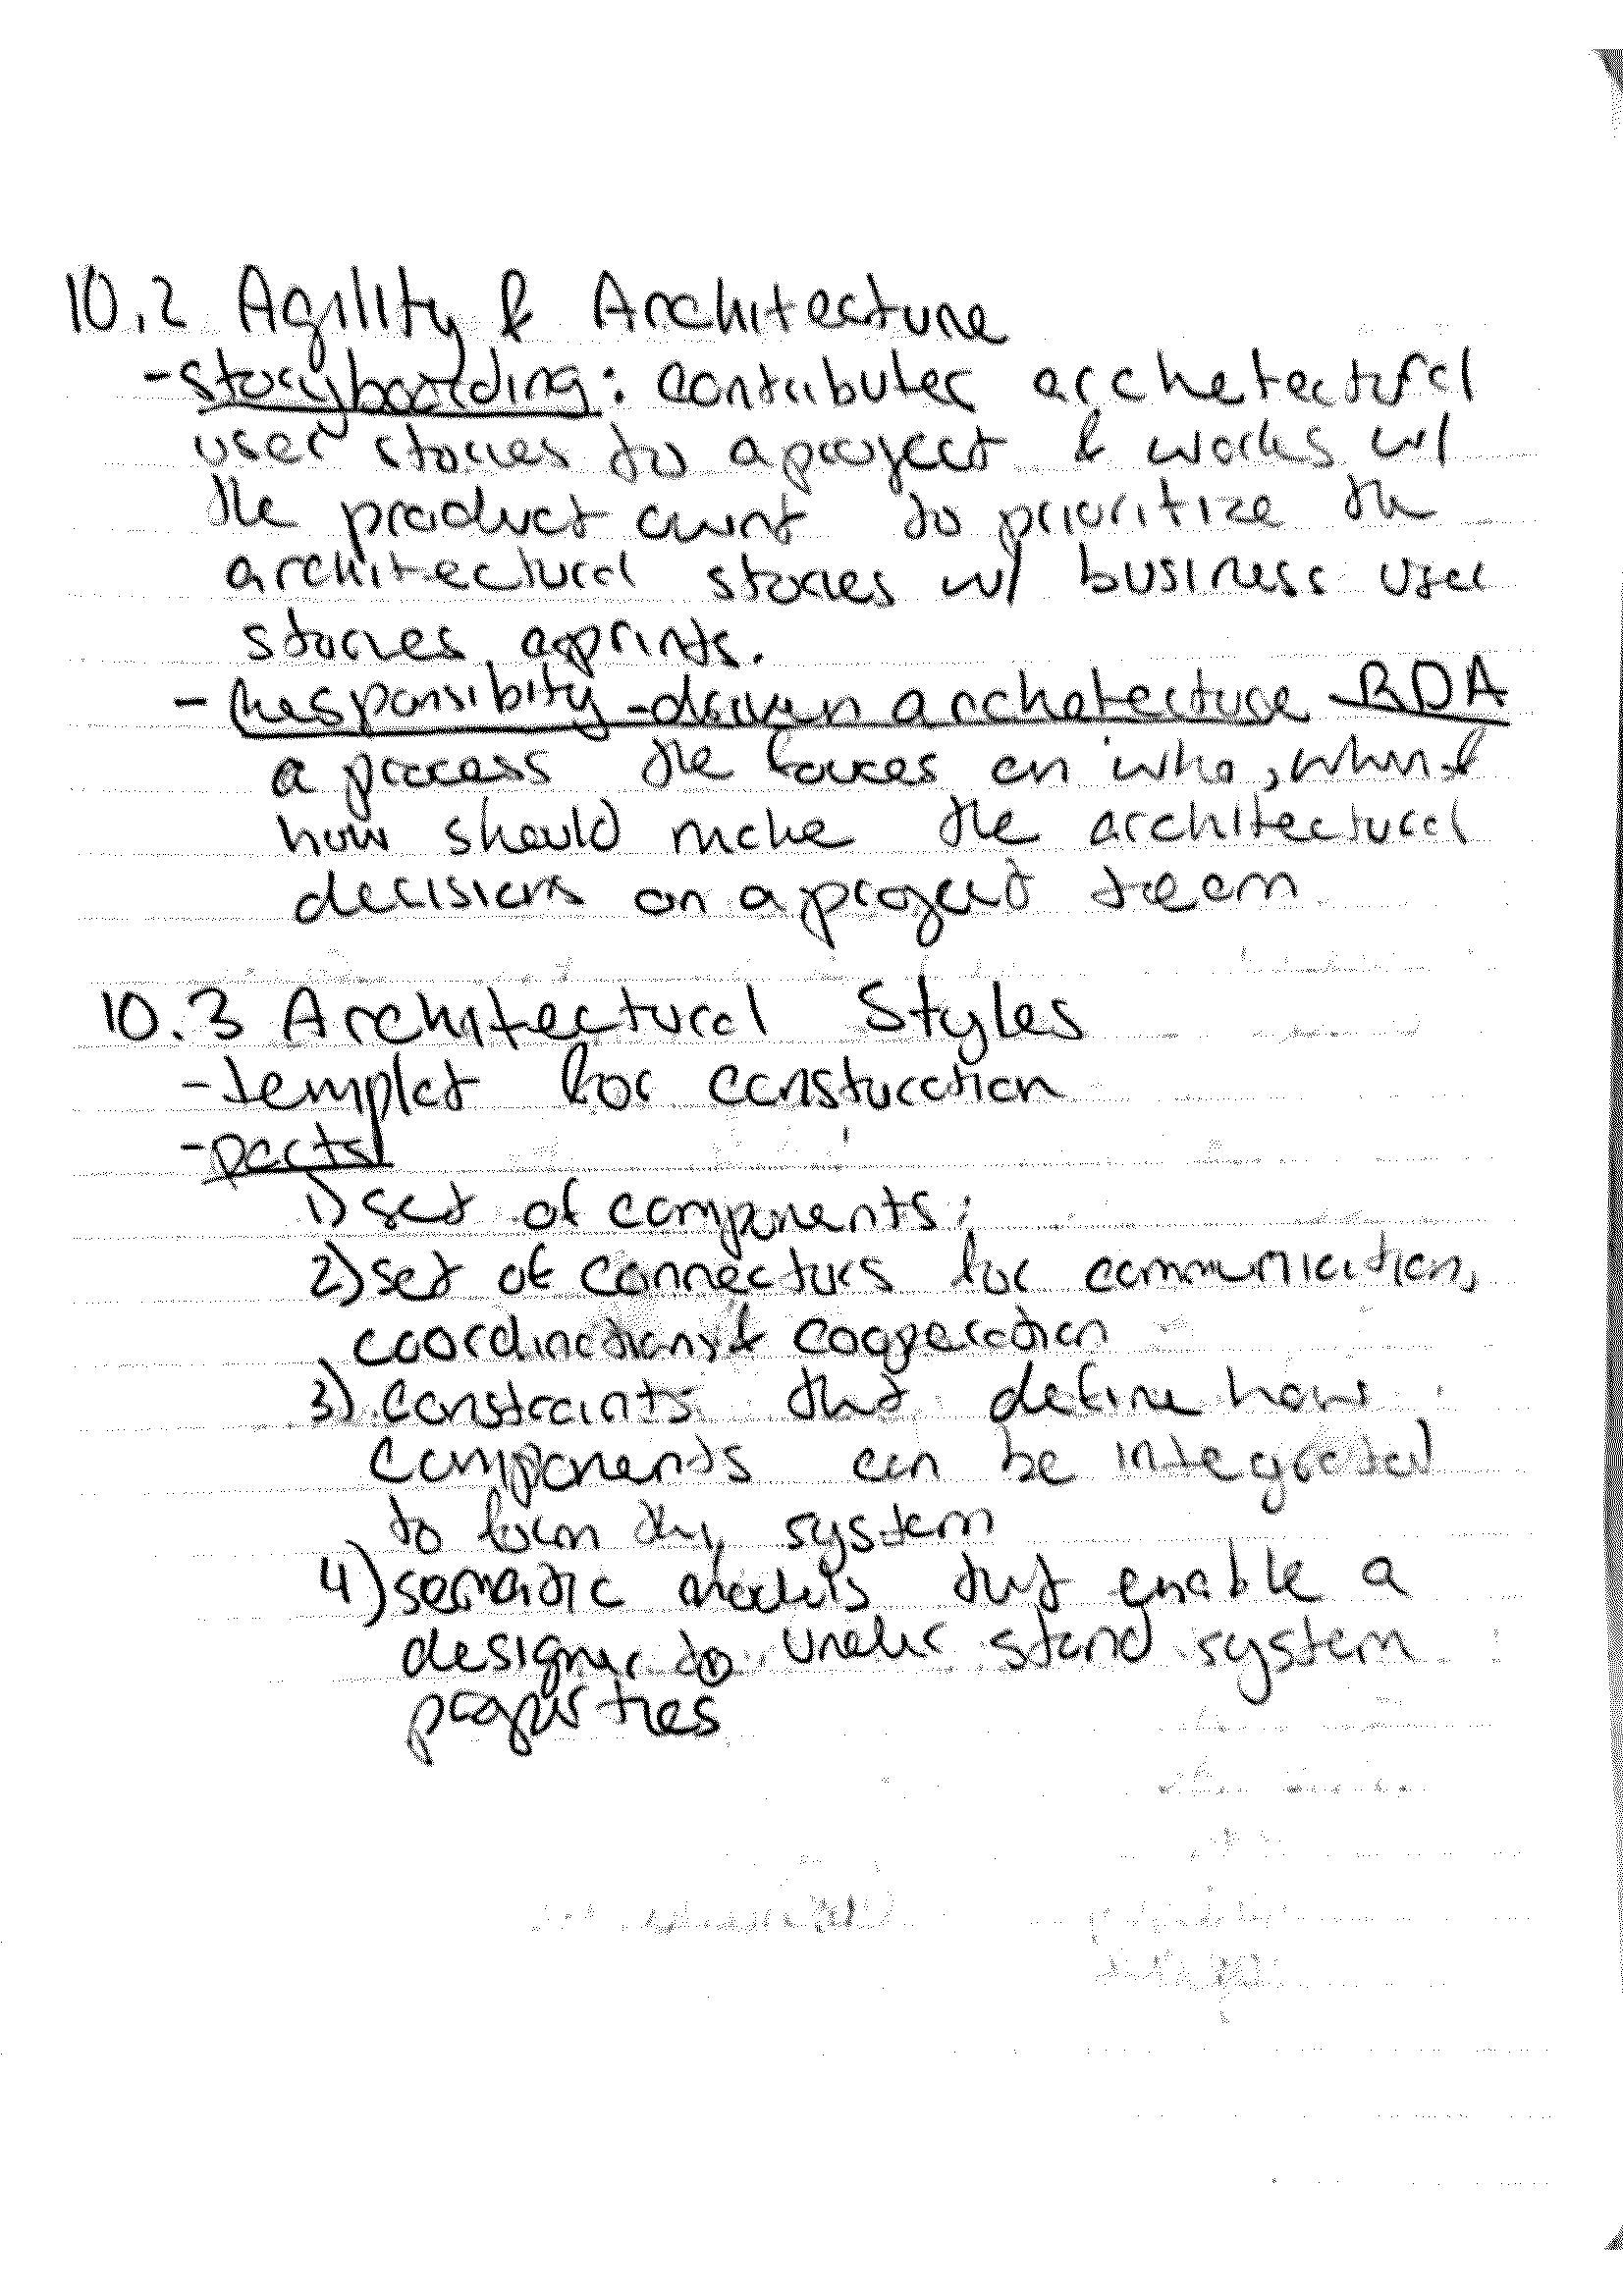 10.2 Agility & Architecture
-storyboarding: contributes archetectural
user stories to a project & works w/
the product ownt to prioritize the
architectural stories w/ business user
stories asprints.
- Responsibity-driven archetecture -RDA
a process the focuses on who, when &
how should make the architectural
decisions on a project team
10.3 Architectural Styles
-templat for constucction
-parts
1) set of components
2) set of connectors for communication,
coordinations, & cooperation
3) constraints that define how
components can be integrated
to form the system
4) semantic models that enable a
designer to under stand system
properties